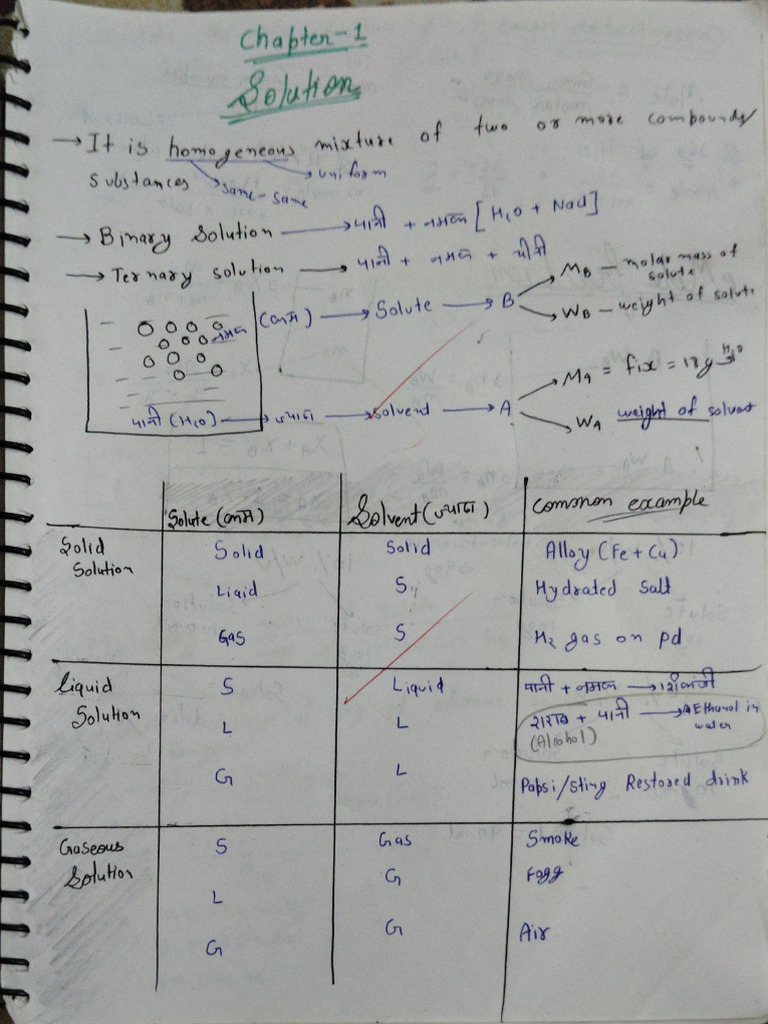 Chapter-1
Solution
→ It is homogeneous mixture of two or more compounds/
substances same-same uniform
→ Binary Solution → पानी + नमक [H2O + Nacl]
→ Ternary solution → पानी + नमक + चीनी
नमक (कम) → Solute → B MB - molar mass of solute
WB - weight of solute
पानी (H2O) → ज्यादा → solvent → A MA = fix = 18g H2O
WA weight of solvent
Solute (कम) Solvent (ज्यादा) Common example
Solid Solution Solid Solid Alloy (Fe + Cu)
Liqid S Hydrated Salt
Gas S H2 gas on pd
Liquid Solution S Liquid पानी + नमक →
L L शराब + पानी → Ethanol in water
(Alcohol)
G L Papsi/Sting Restored drink
Gaseous Solution S Gas Smoke
L G Fogg
G G Air